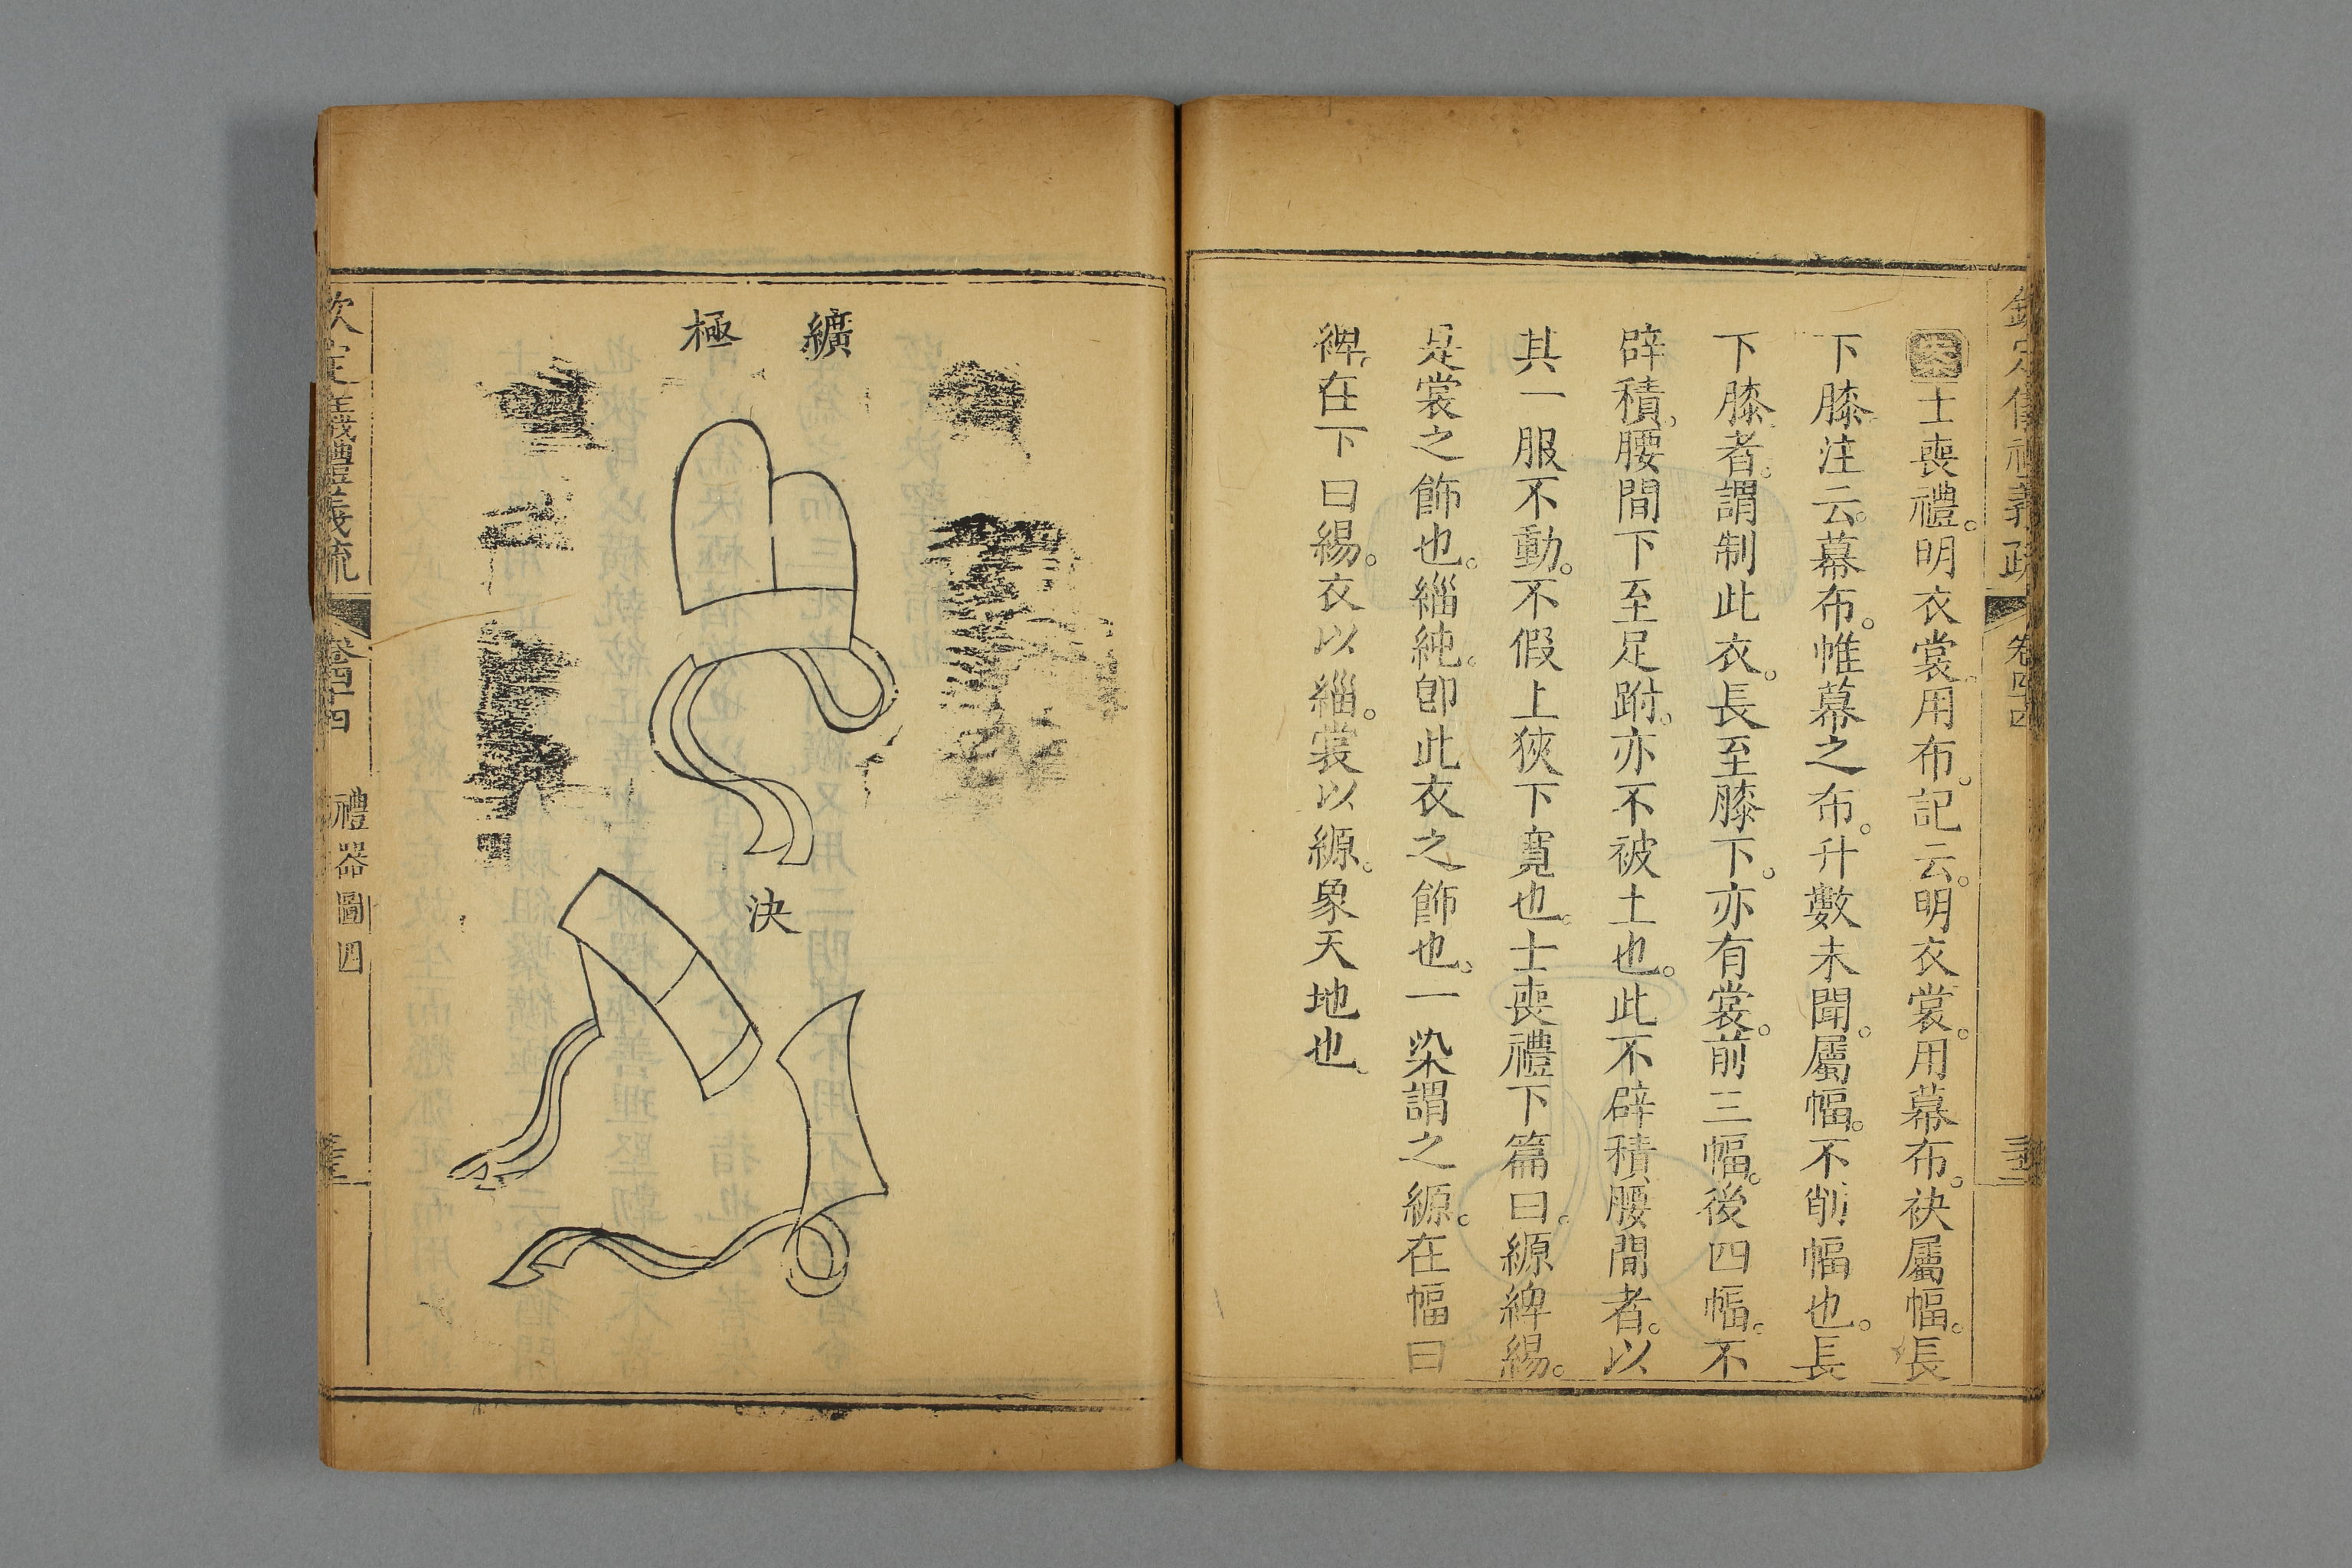 欽定儀禮義疏 卷四十四
士喪禮。明衣裳。用布。記云。明衣裳。用幕布。袂屬幅。長
下膝。注云。幕布。帷幕之布。升數未聞。屬幅。不削幅也。長
下膝者。謂制此衣。長至膝下。亦有裳。前三幅。後四幅。不
辟積。腰間下至足跗。亦不被土也。此不辟積腰間者。以
其一服不動。不假上狹下寬也。士喪禮下篇曰。縓綼緆。
是裳之飾也。緇純。卽此衣之飾也。一染謂之縓。在幅曰
綼。在下曰緆。衣以緇。裳以縓。象天地也。
纊
極
決
欽定儀禮義疏 卷四十四 禮器圖四